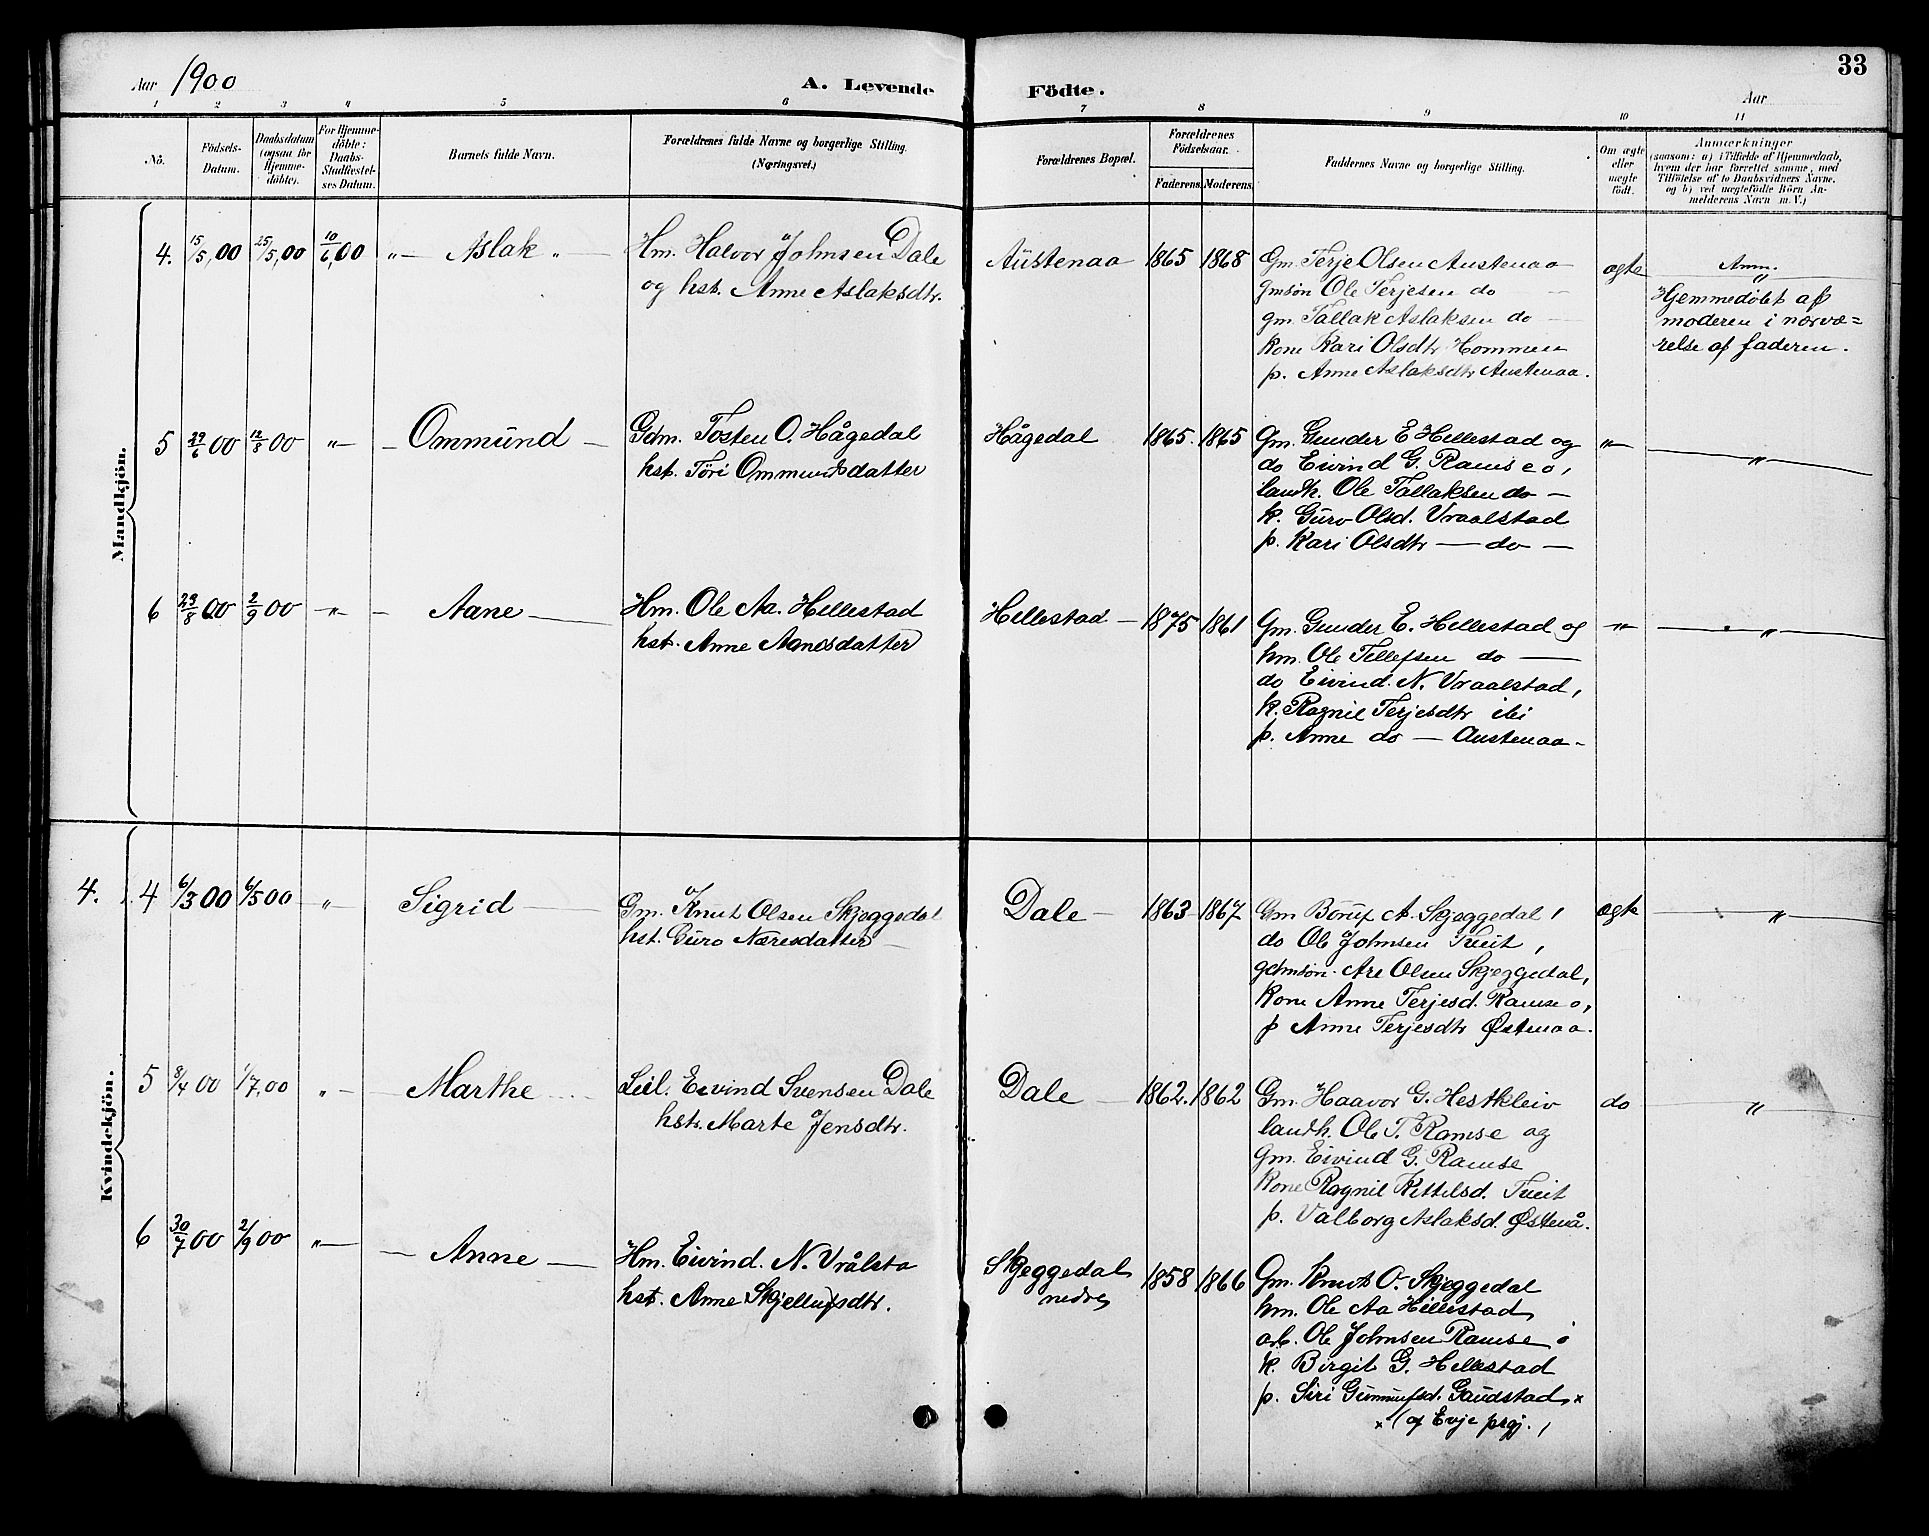 33
Aar 1900
A. Levende
Födte.
Aar
1 2 3 4 5 6 7 8 9 10 11
No.
Födsels-
Datum.
Daabsdatum
(ogsaa for
Hjemme-
döbte).
For Hjemme-
döbte:
Daabs-
Stadfæstel-
ses Datum.
Barnets fulde Navn.
Forældrenes fulde Navne og borgerlige Stilling.
(Næringsvei.)
Forældrenes Bopæl.
Forældrenes
Födselsaar.
Faderens.
Moderens.
Faddernes Navne og borgerlige Stilling.
Om ægte
eller
uægte
födt.
Anmærkninger
(saasom: a) i Tilfælde af Hjemmedaab,
hvem der har forrettet samme, med
Tilföielse af to Daabsvidners Navne.
og b) ved uægtefödte Börn An-
melderens Navn m. V.)
Mandkjön.
4. 15/5,00 25/5,00 10/6,00 „ — Aslak „ —
Hm. Halvor Johnsen Dale
og hst. Anne Aslaksdtr.
Austenaa 1865 1868
Gm. Terje Olsen Austenaa
gmsön Ole Terjesen do —
gm. Tallak Aslaksen do —
Kone Kari Olsdtr Hommen
p. Anne Aslaksdtr Austenaa.
ægte
Anm.
„
Hjemmedöbt af
moderen i nærvæ=
relse af faderen.
5 29/6 00 12/8 00 „ — Ommund —
Gdm. Tosten O. Hågedal
hst. Töri Ommundsdatter
Hågedal 1865. 1865
Gm. Gunder E Hellestad og
do Eivind G. Ramse o,
landh. Ole Tallaksen do —
k. Guro Olsd. Vraalstad
p. Kari Olsdtr — do —
„ — „
6 23/8 00 2/9 00 — „ — Aane —
Hm. Ole Aa. Hellestad
hst. Anne Aanesdatter
Hellestad — 1875 1861
Gm. Gunder E. Hellestad og
hm. Ole Tellefsen do —
do Eivind. N. Vraalstad,
k. Ragnil Terjesdtr ibi
p. Anne do — Austenaa -
„ — „
Kvindekjön.
4. 4 6/3 00 6/5 00 „ — Sigrid —
Gm. Knut Olsen Skjeggedal
hst. Guro Næresdatter —
Dale — 1863 1867
Gm Börüf A. Skjeggedal,
do Ole Johnsen Tveit,
gdmsön. Are Olsen Skjeggedal,
Kone Anne Terjesd. Ramse o,
p Anne Terjesdtr Østenaa.
ægte „
5 8/4 00 1/7,00 „ — Marthe
Leil. Eivind Svensen Dale
hst. Marte Jensdtr.
Dale — 1862. 1862
Gm. Haavor G. Hestkleiv
landh. Ole T. Ramse og
Gm. Eivind G. Ramse
Kone Ragnil Kittelsd. Tveit
p. Valborg Aslaksd. Østenå.
do „
6 30/7 00 2/9 00 „ — Anne —
Hm. Eivind. N. Vrålsta
hst. Anne Skjellufsdtr.
Skjeggedal
nedre
1858 1866
Gm. Knut O. Skjeggedal
hm. Ole Aa Hellestad
arb. Ole Johnsen Ramse o
k. Birgit G. Hellestad
p. Siri Gunnufsd. Gaudstad x
x (af Evje prgj.)